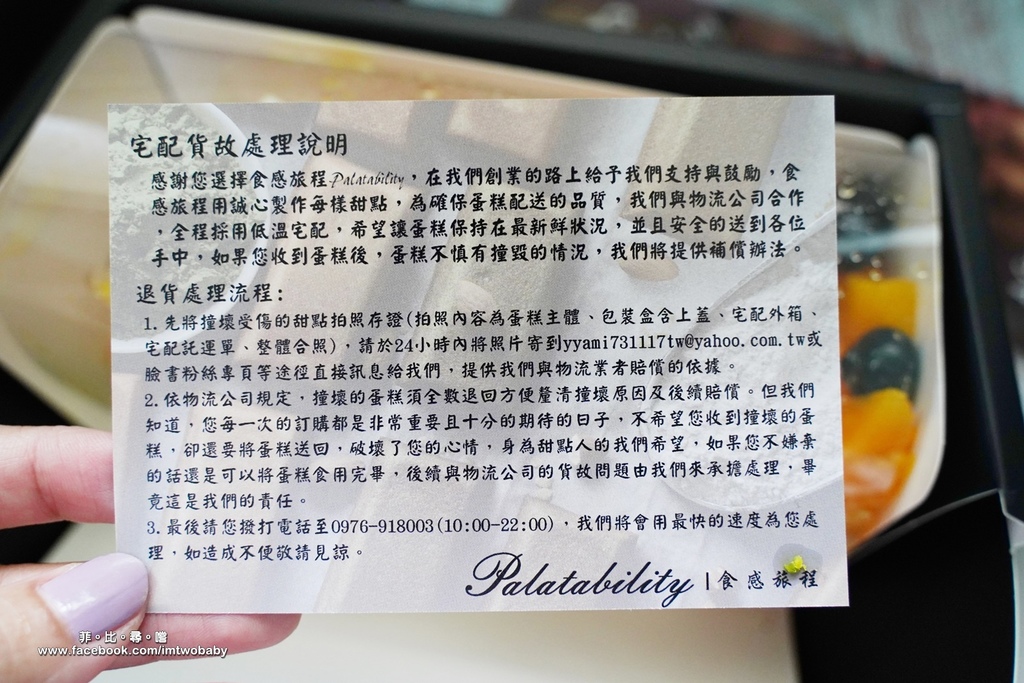 宅配貨故處理說明
感謝您選擇食感旅程Palatability，在我們創業的路上給予我們支持與鼓勵，食
感旅程用誠心製作每樣甜點，為確保蛋糕配送的品質，我們與物流公司合作
，全程採用低溫宅配，希望讓蛋糕保持在最新鮮狀況，並且安全的送到各位
手中，如果您收到蛋糕後，蛋糕不慎有撞毀的情況，我們將提供補償辦法。
退貨處理流程：
1.先將撞壞受傷的甜點拍照存證(拍照內容為蛋糕主體、包裝盒含上蓋、宅配外箱、
宅配託運單、整體合照)，請於24小時內將照片寄到yyami731117tw@yahoo.com.tw或
臉書粉絲專頁等途徑直接訊息給我們，提供我們與物流業者賠償的依據。
2.依物流公司規定，撞壞的蛋糕須全數退回方便釐清撞壞原因及後續賠償。但我們
知道，您每一次的訂購都是非常重要且十分的期待的日子，不希望您收到撞壞的蛋
糕，卻還要將蛋糕送回，破壞了您的心情，身為甜點人的我們希望，如果您不嫌棄
的話還是可以將蛋糕食用完畢，後續與物流公司的貨故問題由我們來承擔處理，畢
竟這是我們的責任。
3.最後請您撥打電話至0976-918003(10:00-22:00)，我們將會用最快的速度為您處
理，如造成不便敬請見諒。
Palatability | 食感旅程
菲。比。尋。嚐
www.facebook.com/imtwobaby